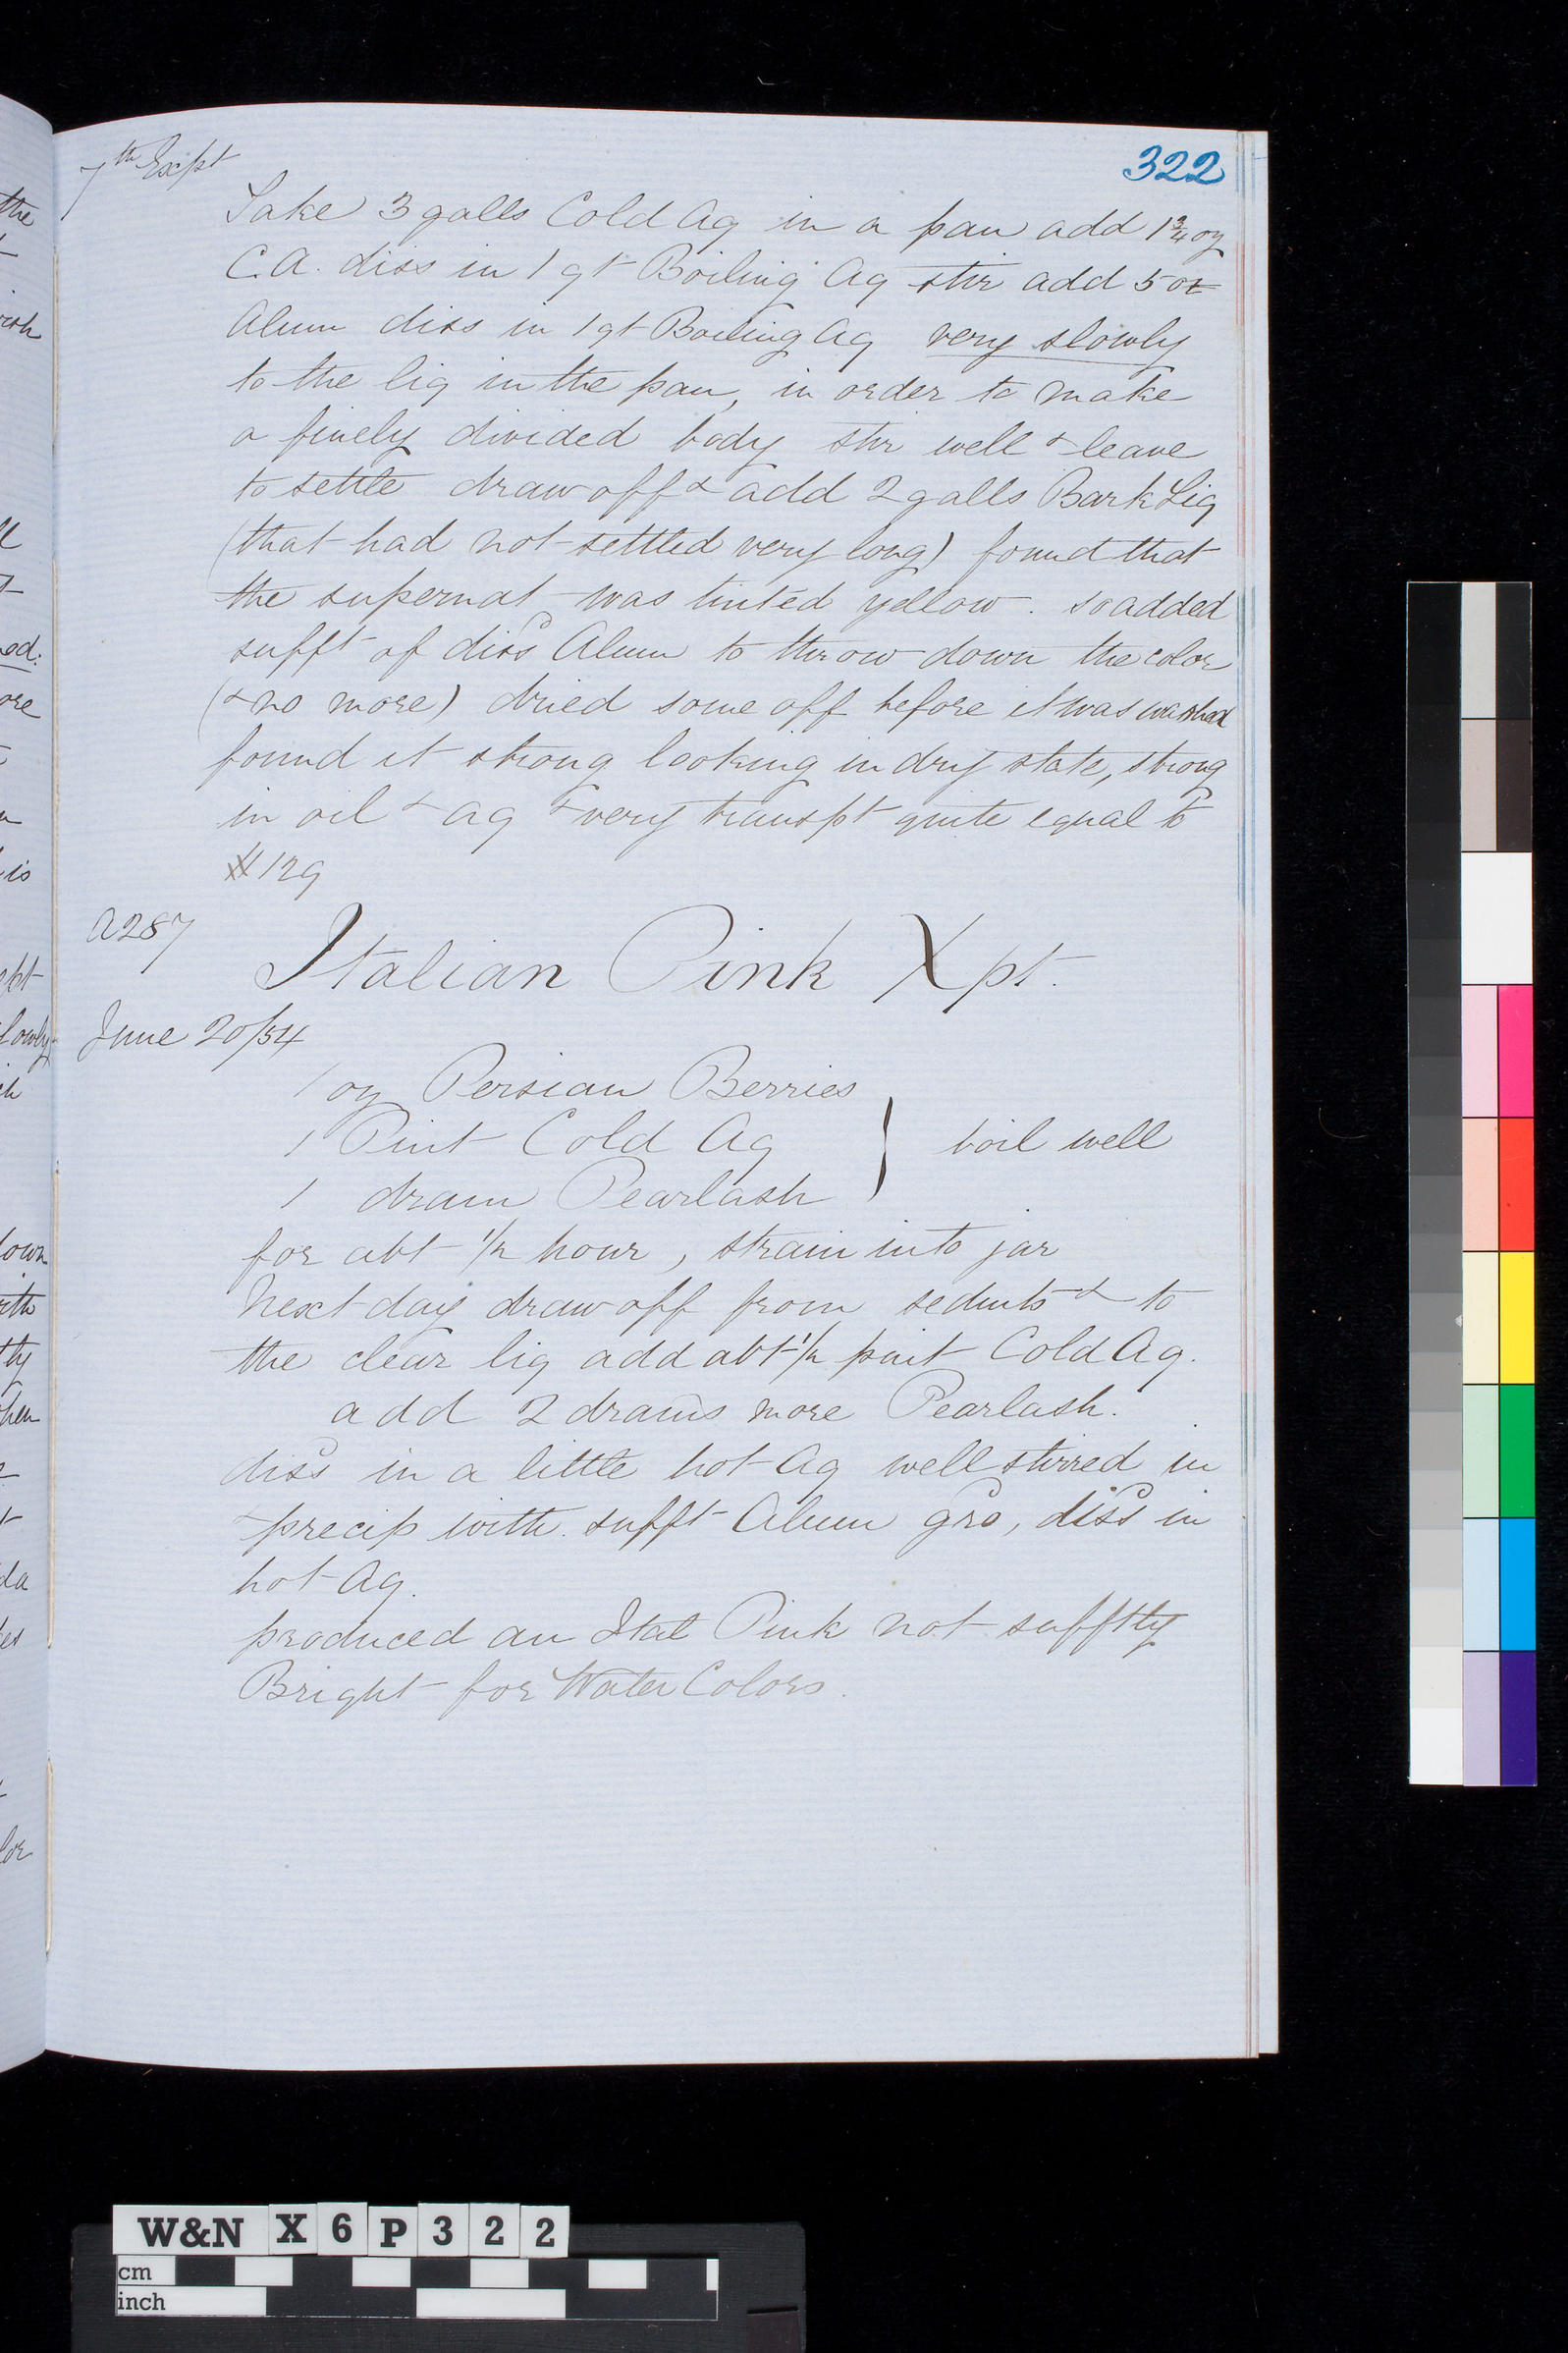 322
7th Expt
Take 3 galls Cold Aq in a pan add 1 3/4 oz
C.A. diss in 1 qt Boiling Aq stir add 5 oz
Alum diss in 1 qt Boiling Aq very slowly
to the liq in the pan, in order to make
a finely divided body stir well & leave
to settle draw off & add 2 galls Bark Liq
(that had not settled very long) found that
the supernat was tinted yellow. so added
sufft of dissd Alum to throw down the color
(& no more) dried some off before it was washed
found it strong looking in dry state, strong
in oil & aq & very transpt quite equal to
129
A287
Italian Pink Xpt.
June 20/54
1 oz Persian Berries
1 Pint Cold Aq } boil well
1 dram Pearlash
for abt 1/2 hour, strain into jar
Next day draw off from sedmts & to
the clear liq add abt 1/2 pint Cold Aq.
add 2 drams more Pearlash.
dissd in a little hot Aq well stirred in
& precip with sufft Alum grd, dissd in
hot Aq.
produced an Ital Pink not sufftly
Bright for Water Colors.
the
ish
ed:
ore
is
lowly
own
ith
tly
hen
da
lor
W&N X6P322
cm
inch